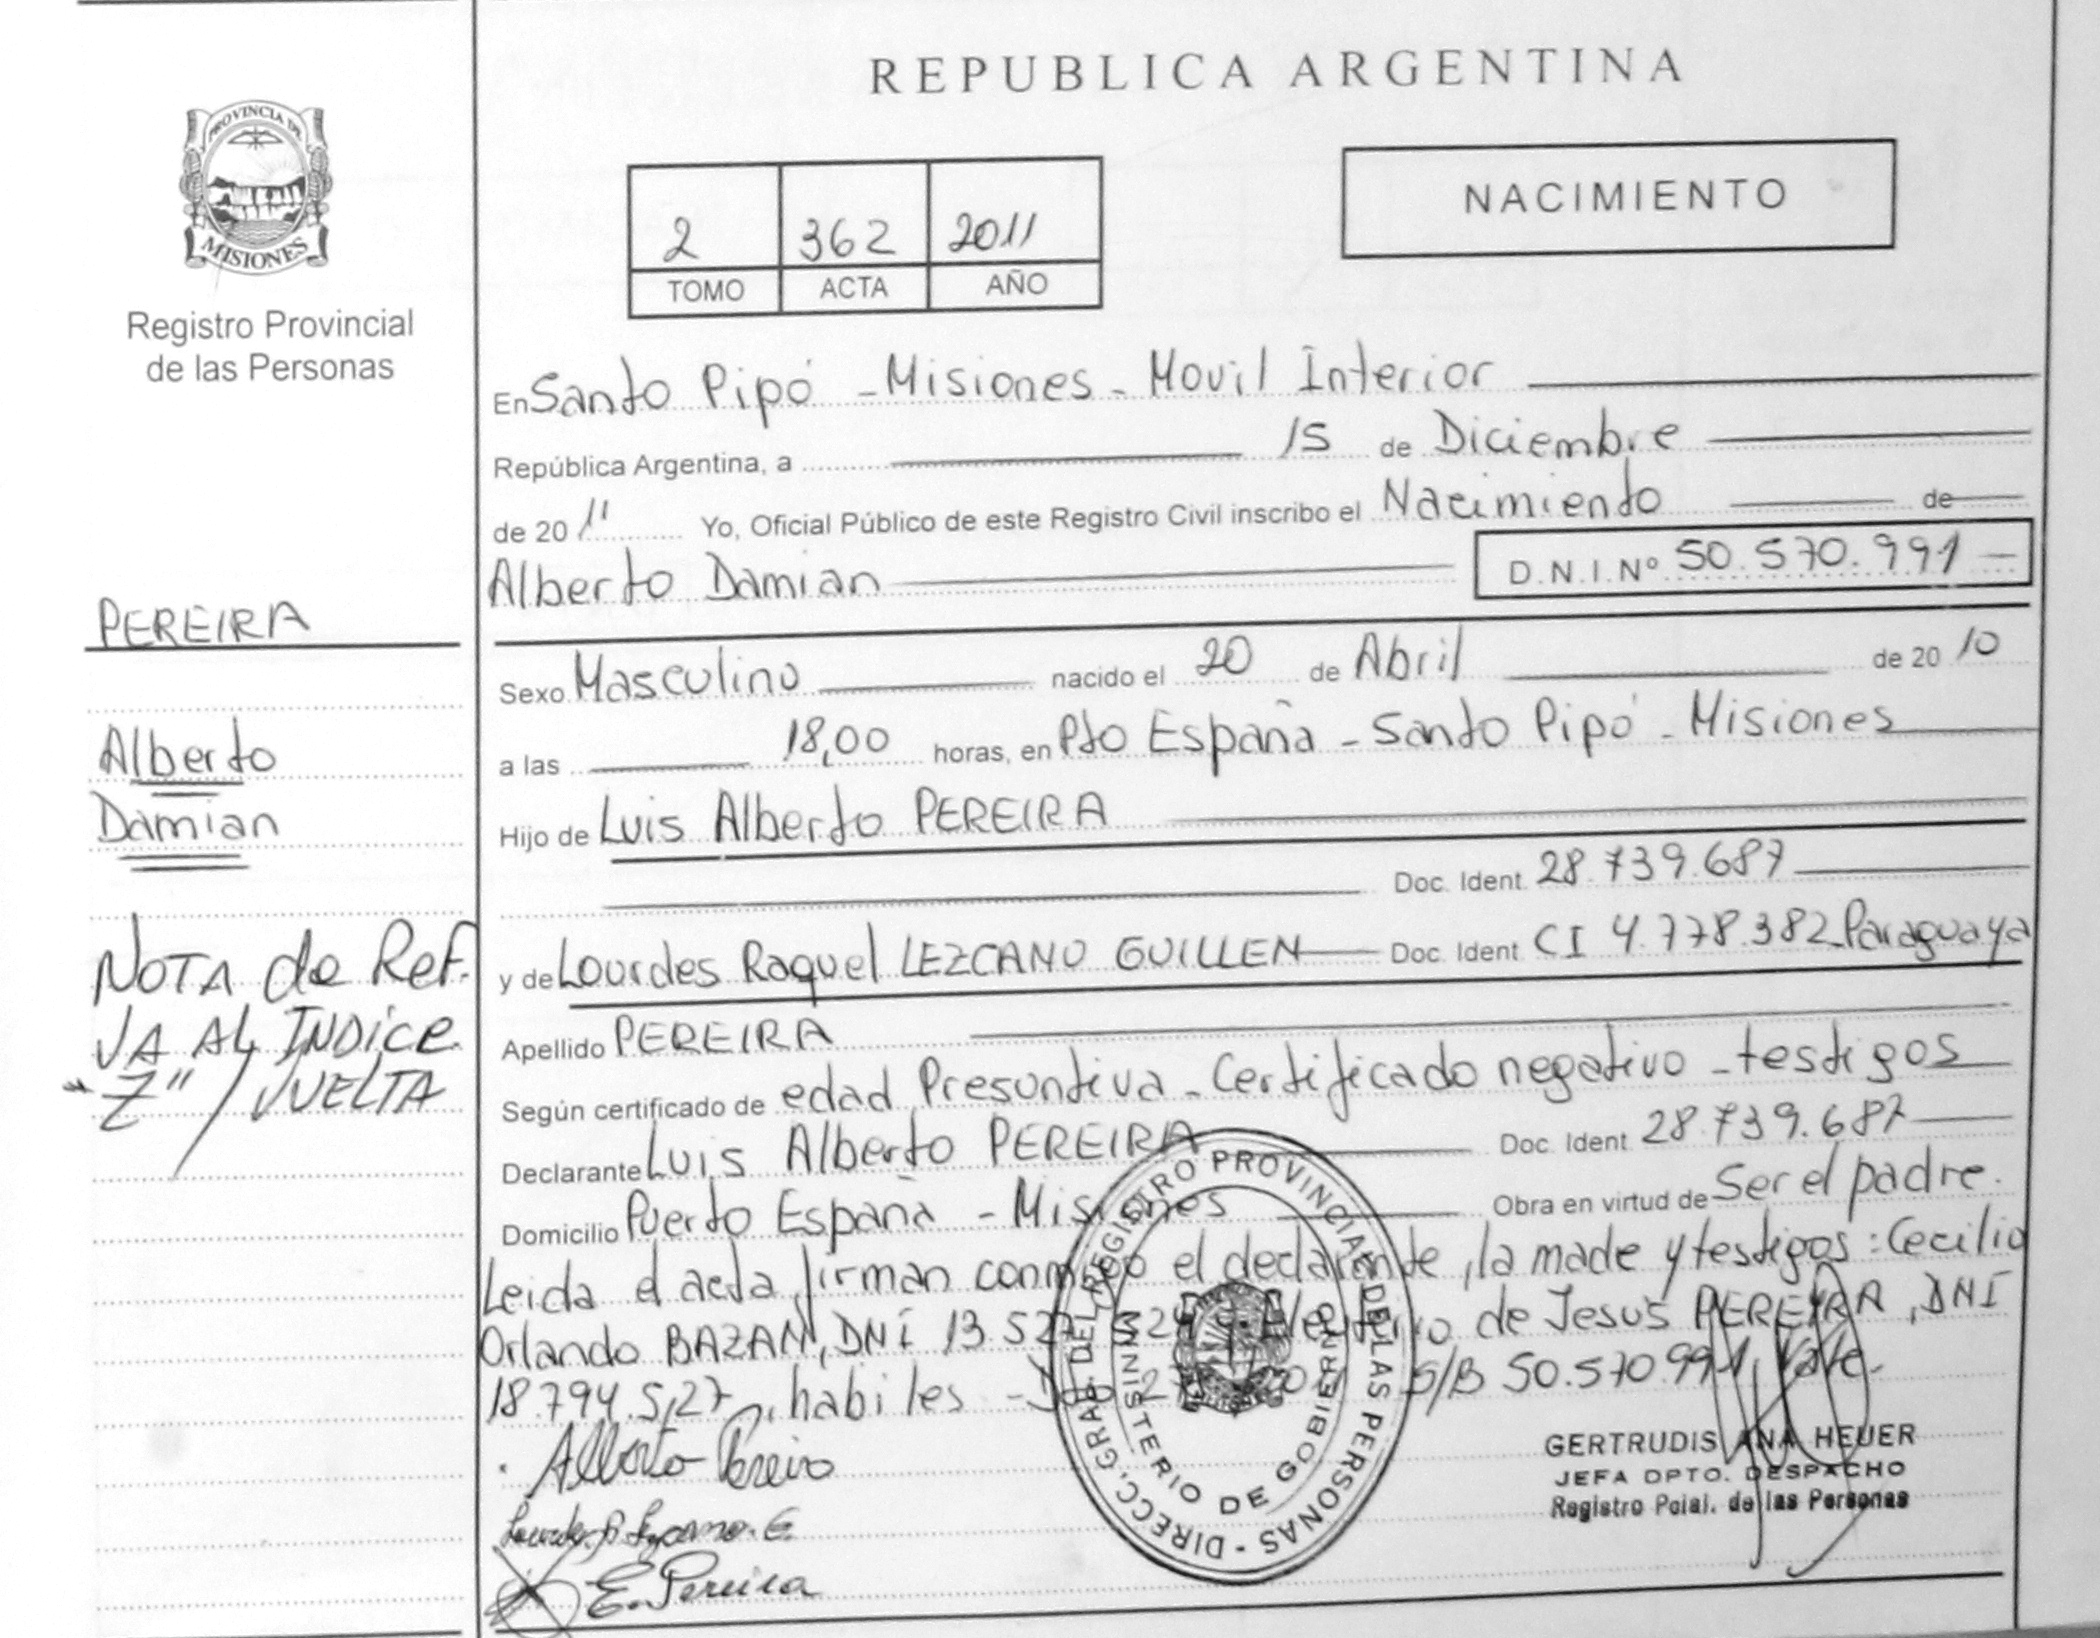 REPUBLICA ARGENTINA
PROVINCIA DE
MISIONES
Registro Provincial
de las Personas
NACIMIENTO
2 362 2011
TOMO ACTA AÑO
En Santo Pipó - Misiones - Movil Interior
República Argentina, a 15 de Diciembre
de 2011 Yo, Oficial Público de este Registro Civil inscribo el Nacimiento de
Alberto Damian D.N.I.Nº 50.570.991
PEREIRA
Alberto
Damian
NOTA de Ref.
VA AL INDICE
"Z" / VUELTA
Sexo Masculino nacido el 20 de Abril de 2010
a las 18,00 horas, en Pto España - Santo Pipó - Misiones
Hijo de Luis Alberto PEREIRA
Doc. Ident. 28.739.687
y de Lourdes Raquel LEZCANO GUILLEN Doc. Ident. CI 4.778.382 Paraguaya
Apellido PEREIRA
Según certificado de edad Presuntiva - Certificado negativo - testigos
Declarante Luis Alberto PEREIRA Doc. Ident. 28.739.687
Domicilio Puerto España - Misiones Obra en virtud de Ser el padre.
Leida el acta, firman conmigo el declarante, la made y testigos: Cecilio
Orlando BAZAN, DNI 13.527. de Jesus PEREIRA, DNI
18.794.527, habiles - S/B 50.570.991, Vale.
Alberto Pereira
Lourdes R Lezcano. G.
E. Pereira
DIRECC. GRAL. DEL REGISTRO PROVINCIAL DE LAS PERSONAS -
MINISTERIO DE GOBIERNO
GERTRUDIS ANA HEUER
JEFA DPTO. DESPACHO
Registro Pcial. de las Personas